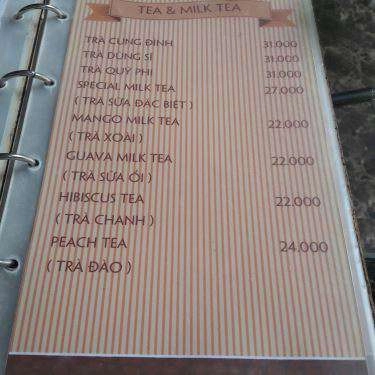 TEA & MILK TEA
TRÀ CUNG ĐÌNH 31.000
TRÀ DŨNG SĨ 31.000
TRÀ QUÝ PHI 31.000
SPECIAL MILK TEA 27.000
( TRÀ SỮA ĐẶC BIỆT )
MANGO MILK TEA 22,000
( TRÀ XOÀI )
GUAVA MILK TEA 22.000
( TRÀ SỮA ỔI )
HIBISCUS TEA 22.000
( TRÀ CHANH )
PEACH TEA 24.000
( TRÀ ĐÀO )